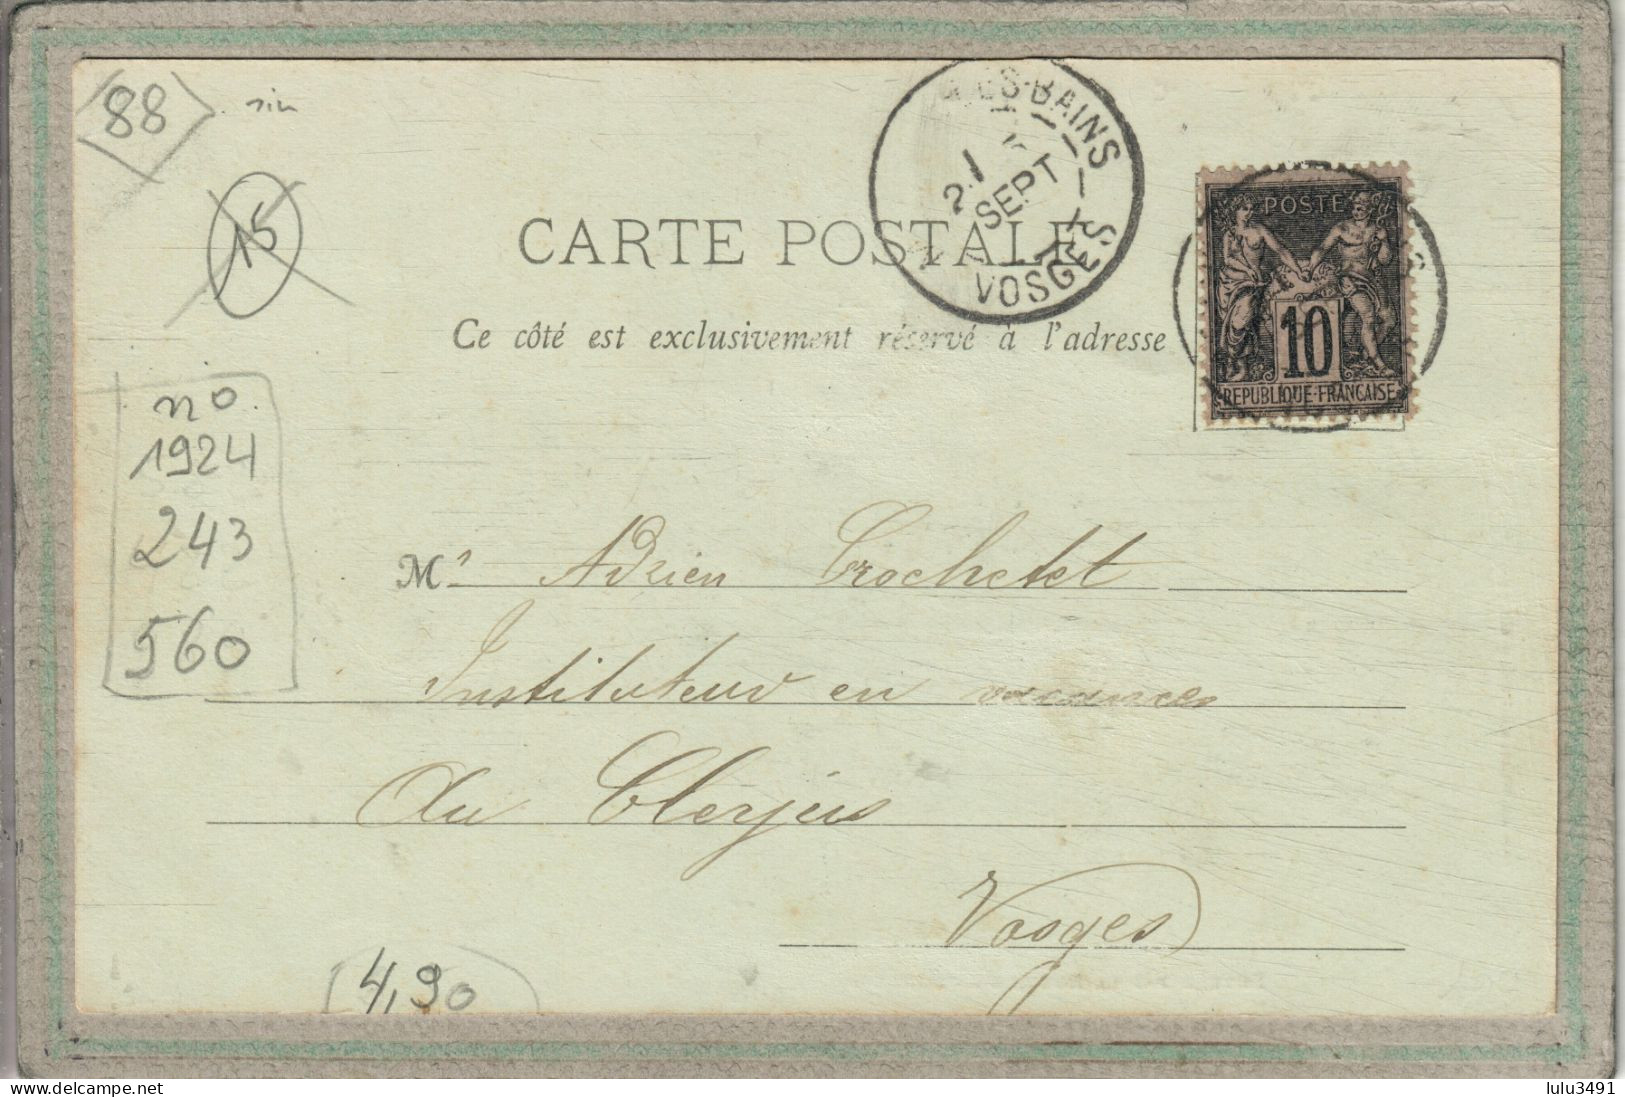 88
15
LES-BAINS
21 SEPT
VOSGES
CARTE POSTALE
Ce côté est exclusivement réservé à l'adresse
POSTE
10
REPUBLIQUE-FRANÇAISE
no
1924
243
560
Mr Adrien Crochetet
Instituteur en vacances
Au Clerjus
Vosges
4,90
lulu3491